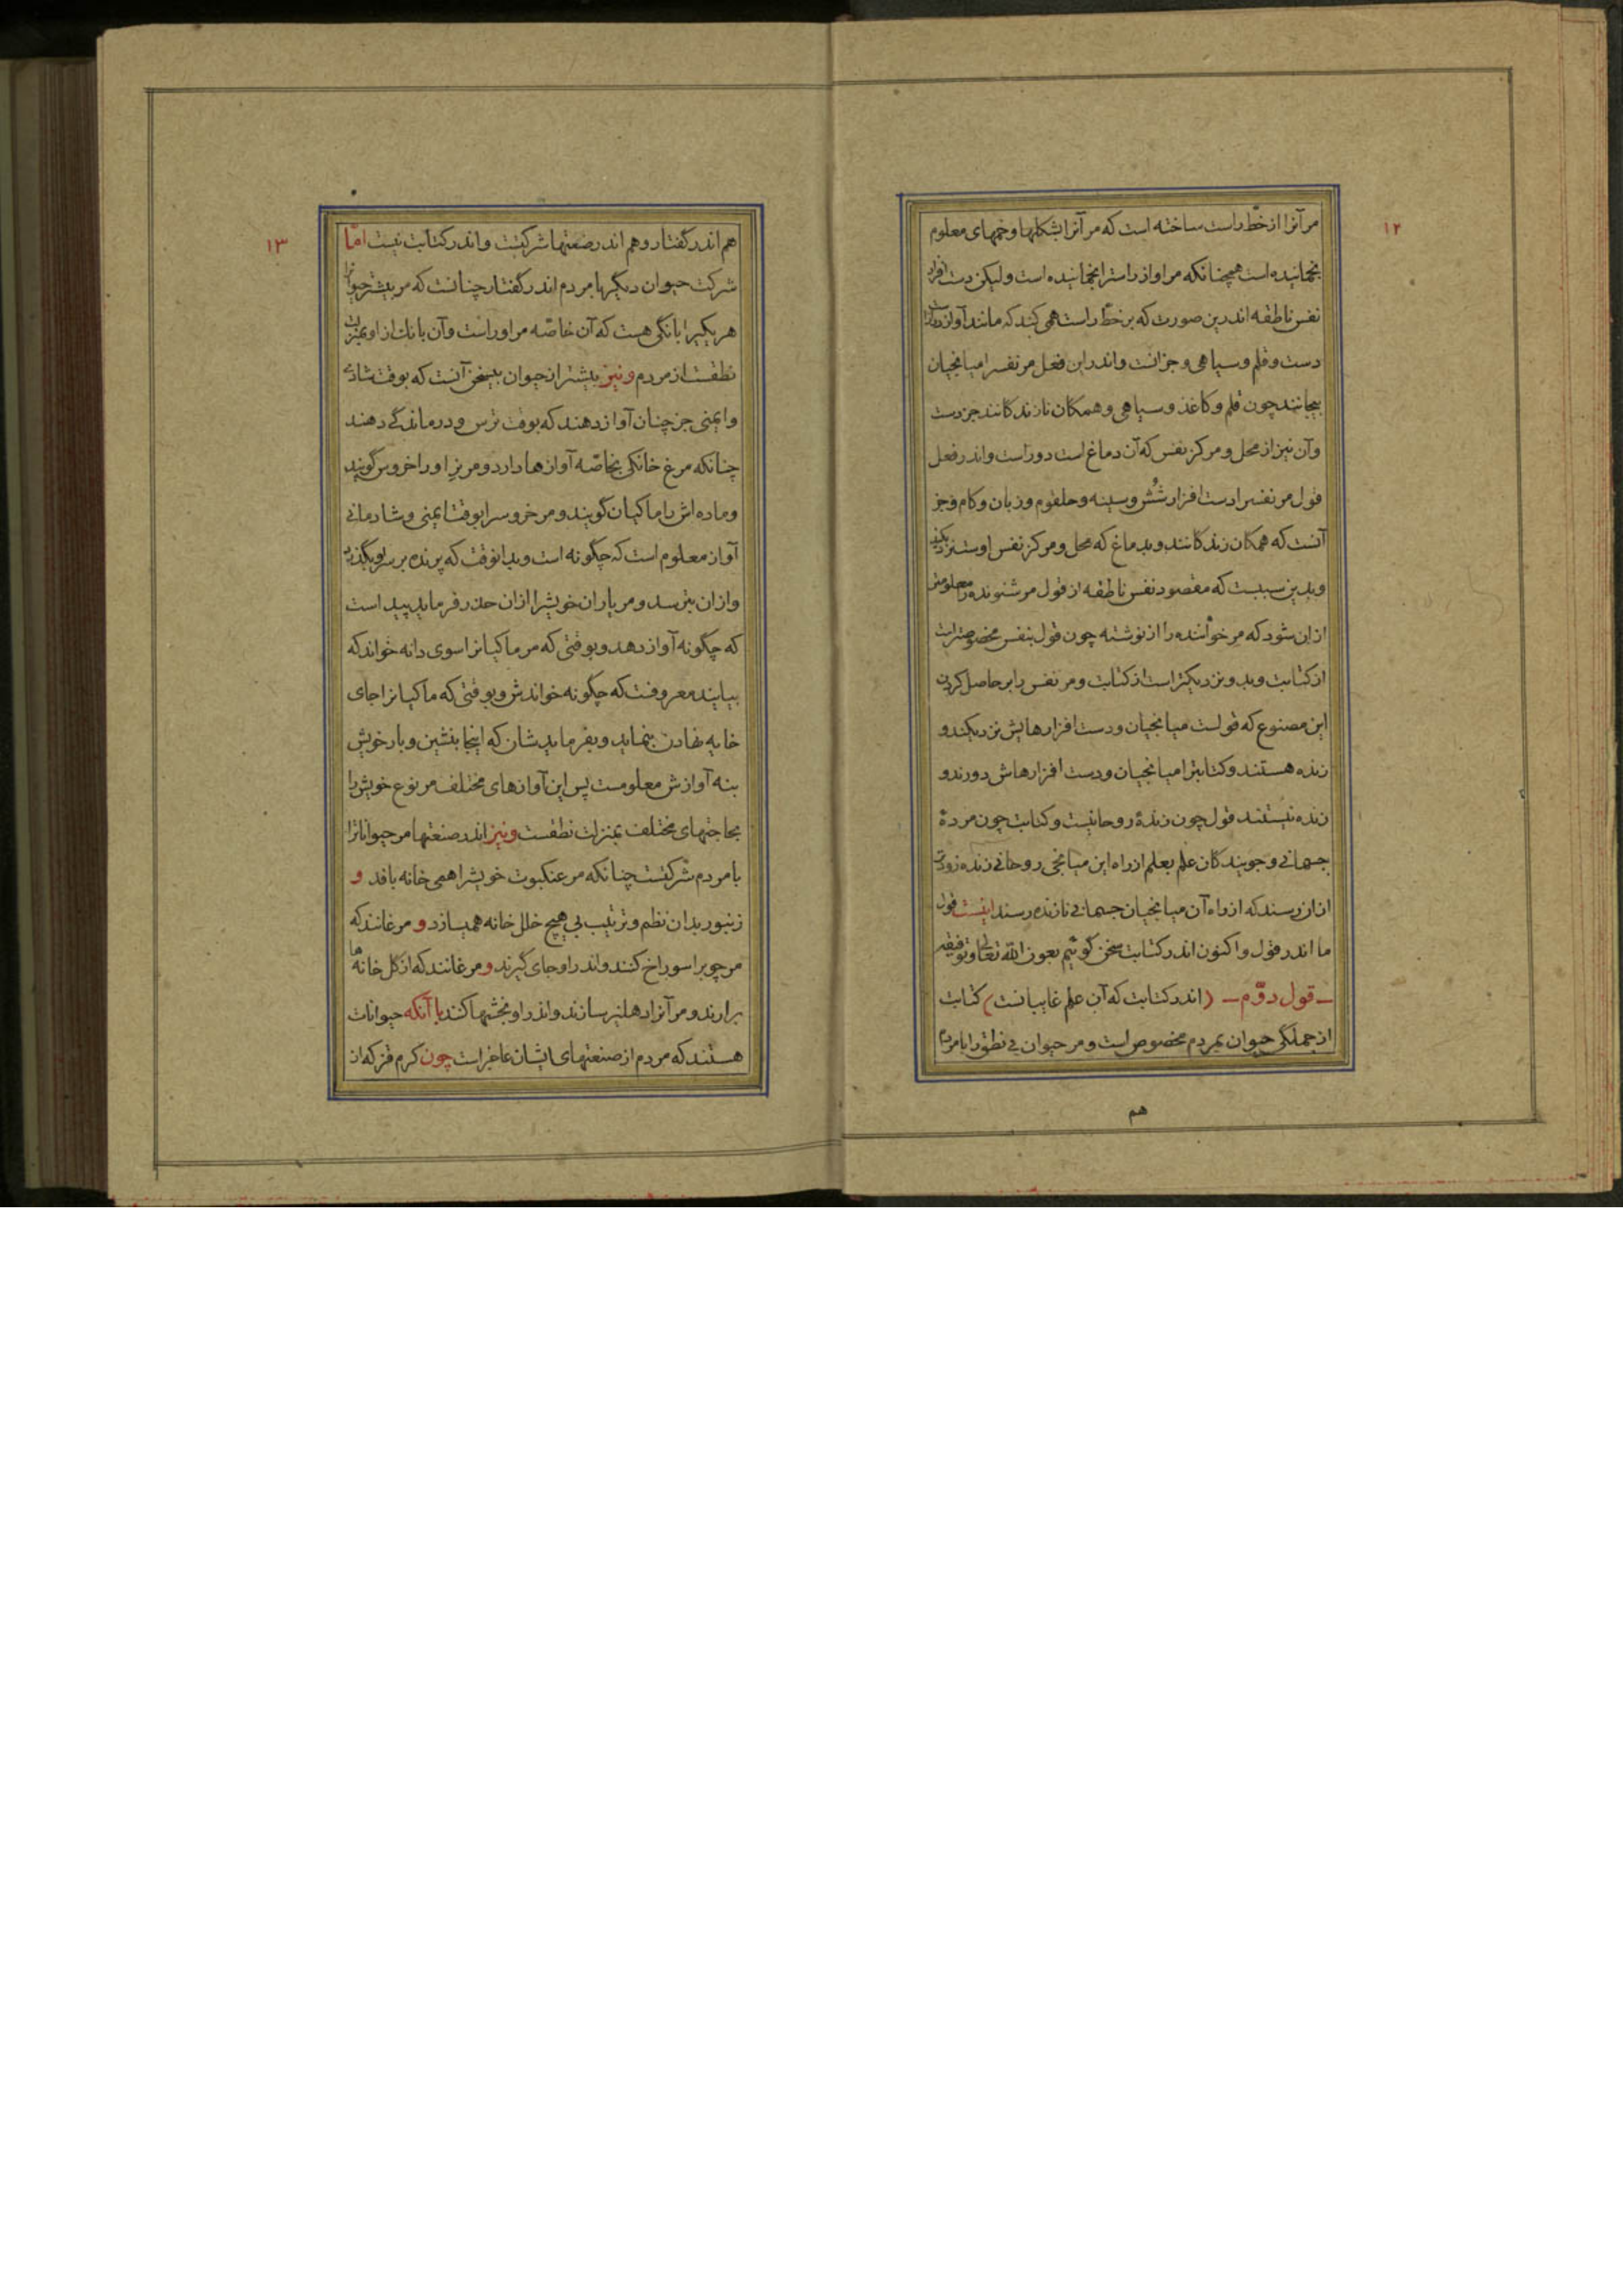 ۱۲
مر آنرا از خطّ راست ساخته است که مر آنرا بشکلها و خمهای معلوم
بخمانیده است همچنانکه مر آواز راست را بخمانیده است ولیکن دست افزار
نفس ناطقه اندرین صورت که بر خطّ راست همی کند که مانند آواز است
دست و قلم و سیاهی و جز آنست و اندر این فعل مر نفس را میانجیان
بیجانند چون قلم و کاغذ و سیاهی و همکان نازندکانند جز دست
وآن نیز از محل و مرکز نفس که آن دماغ است دور است و اندر فعل
قول مر نفس را دست افزار شُش و سینه و حلقوم و زبان و کام و جز
آنست که همکان زندکانند و بدماغ که محل و مرکز نفس اوست نزدیکند
وبدین سببست که مقصود نفس ناطقه از قول مر شنونده را معلومتر
ازان شود که مر خواننده را از نوشته چون قول بنفس مخصوصتر است
از کتابت و بدو نزدیکتر است از کتابت و مر نفس را بر حاصل کردن
این مصنوع که قولست میانجیان و دست افزارهایش نزدیکند و
زنده هستند و کتابترا میانجیان و دست افزارهاش دورند و
زنده نیستند قول چون زندهٔ روحانیست و کتابت چون مردهٔ
جسمانی و جویندکان علم بعلم از راه این میانجی روحانی زنده زودتر
ازان رسند که از راه آن میانجیان جسمانی نازنده رسند اینست قول
ما اندر قول و اکنون اندر کتابت سخن گوئیم بعون الله تعالی و توفیقه
ــ قول دوّم ــ (اندر کتابت که آن علم غایبانست) کتابت
از جملگی حیوان بمردم مخصوص است و مر حیوان بی نطق را با مردم
هم
۱۳
هم اندر گفتار و هم اندر صنعتها شرکتست و اندر کتابت نیست امّا
شرکت حیوان دیگر با مردم اندر گفتار چنانست که مر بیشتر حیوانرا
هر یکیرا بانگی هست که آن خاصّه مر اوراست و آن بانک از او بمنزلت
نطقست از مردم و نیز بیشتر از حیوان بیسخن آنست که بوقت شادی
وایمنی جز چنان آواز دهند که بوقت ترس و درماندگی دهند
چنانکه مرغ خانکی بخاصّه آوازها دارد و مر نر اورا خروس گویند
وماده اش را ماکیان گویند و مر خروسرا بوقت ایمنی و شادمانی
آواز معلوم است که چگونه است و بدانوقت که پرنده بر سر او بگذرد
وازان بترسد و مر یاران خویشرا ازان حذر فرماید پیداست
که چگونه آواز دهد و بوقتی که مر ماکیانرا سوی دانه خواند که
بیایند معروفست که چگونه خواندش و بوقتی که ماکیانرا جای
خایه نهادن بنماید و بفرمایدشان که اینجا بنشین و بار خویش
بنه آوازش معلومست پس این آوازهای مختلف مر نوع خویش را
بحاجتهای مختلف بمنزلت نطقست و نیز اندر صنعتها مر حیواناترا
با مردم شرکتست چنانکه مر عنکبوت خویشرا همی خانه بافد و
زنبور بدان نظم و ترتیب بی هیچ خلل خانه همیسازد و مرغانند که
مر چوبرا سوراخ کنند و اندر او جای گیرند و مرغانند که از گل خانه ها
برارند و مر آنرا دهلیز سازند و اندر او بخشها کند با آنکه حیوانات
هستند که مردم از صنعتهای ایشان عاجز است چون کرم قز که از